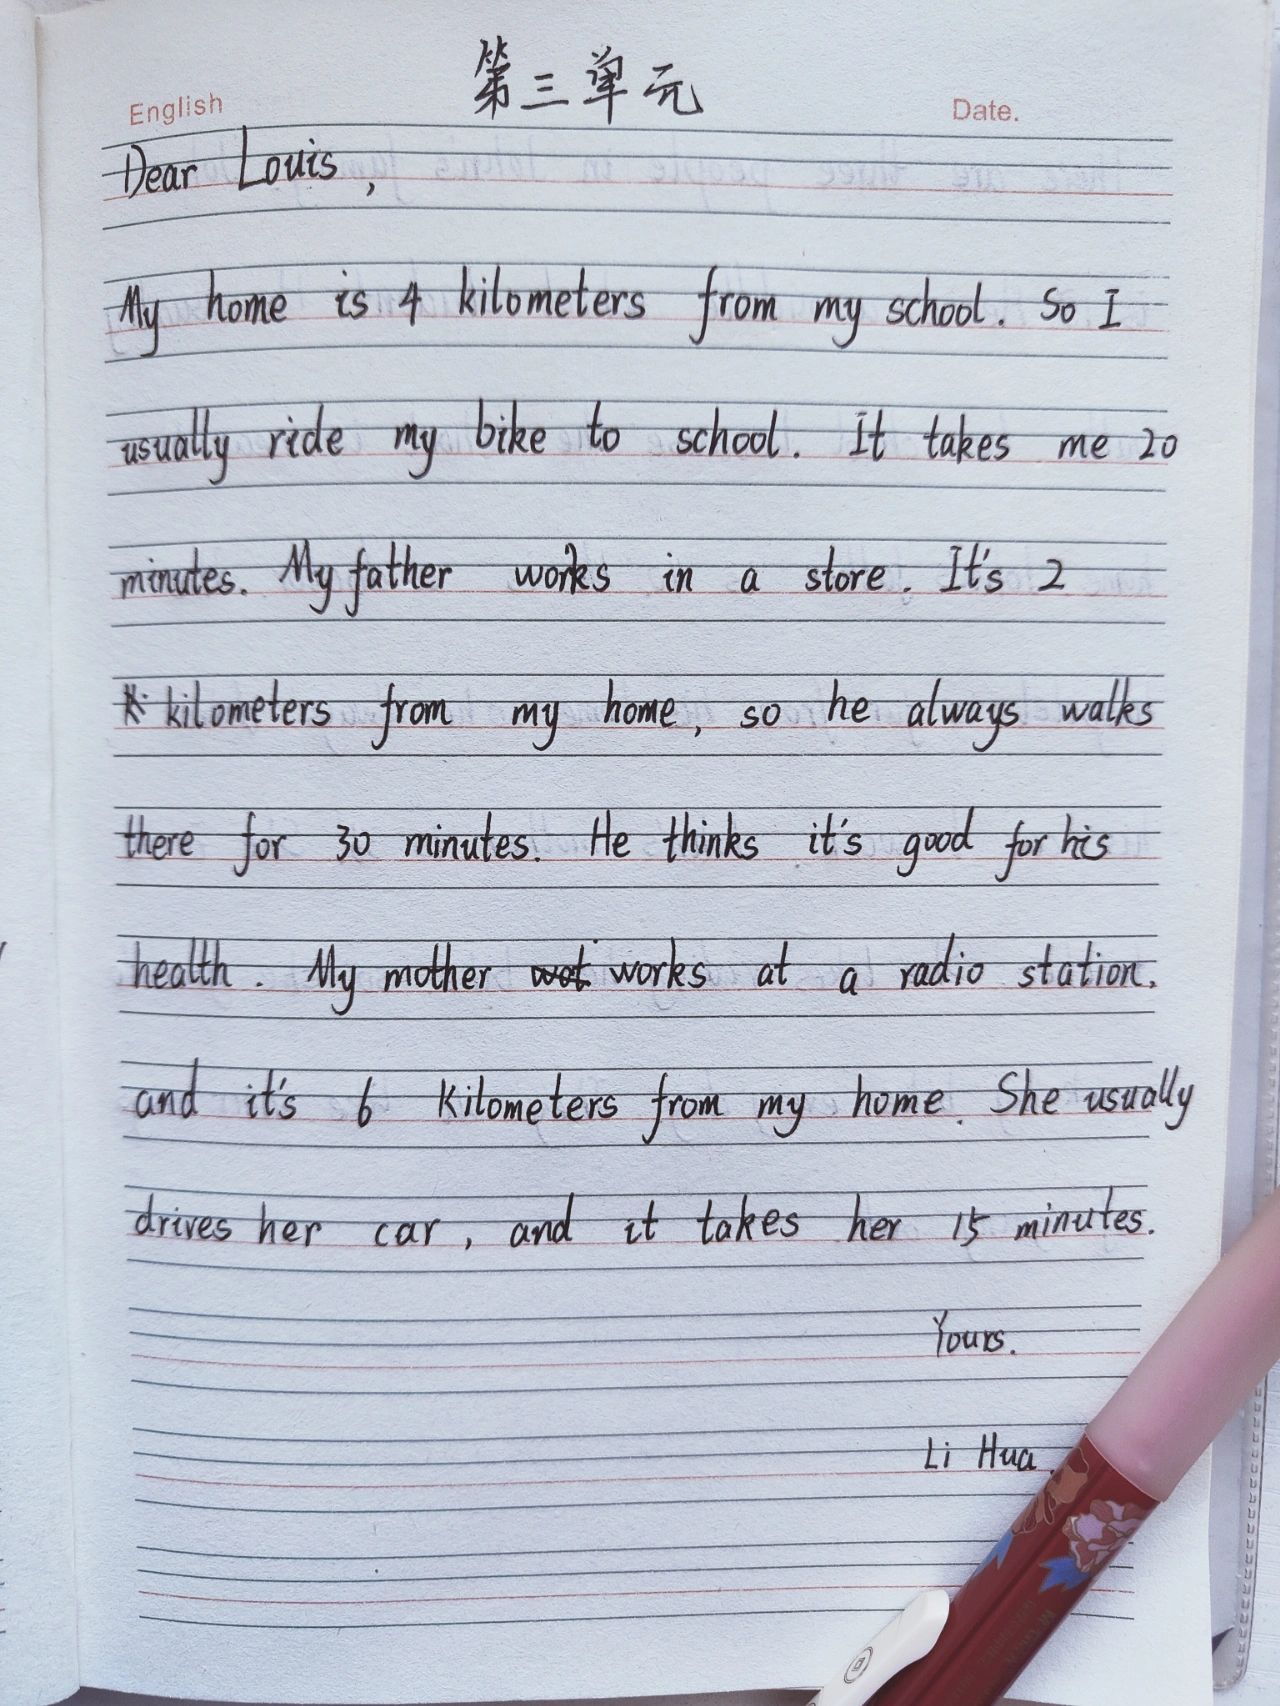 第三单元
English Date.
Dear Louis,
My home is 4 kilometers from my school. So I
usually ride my bike to school. It takes me 20
minutes. My father works in a store. It's 2
kilometers from my home, so he always walks
there for 30 minutes. He thinks it's good for his
health. My mother works at a radio station,
and it's 6 kilometers from my home. She usually
drives her car, and it takes her 15 minutes.
Yours.
Li Hua.